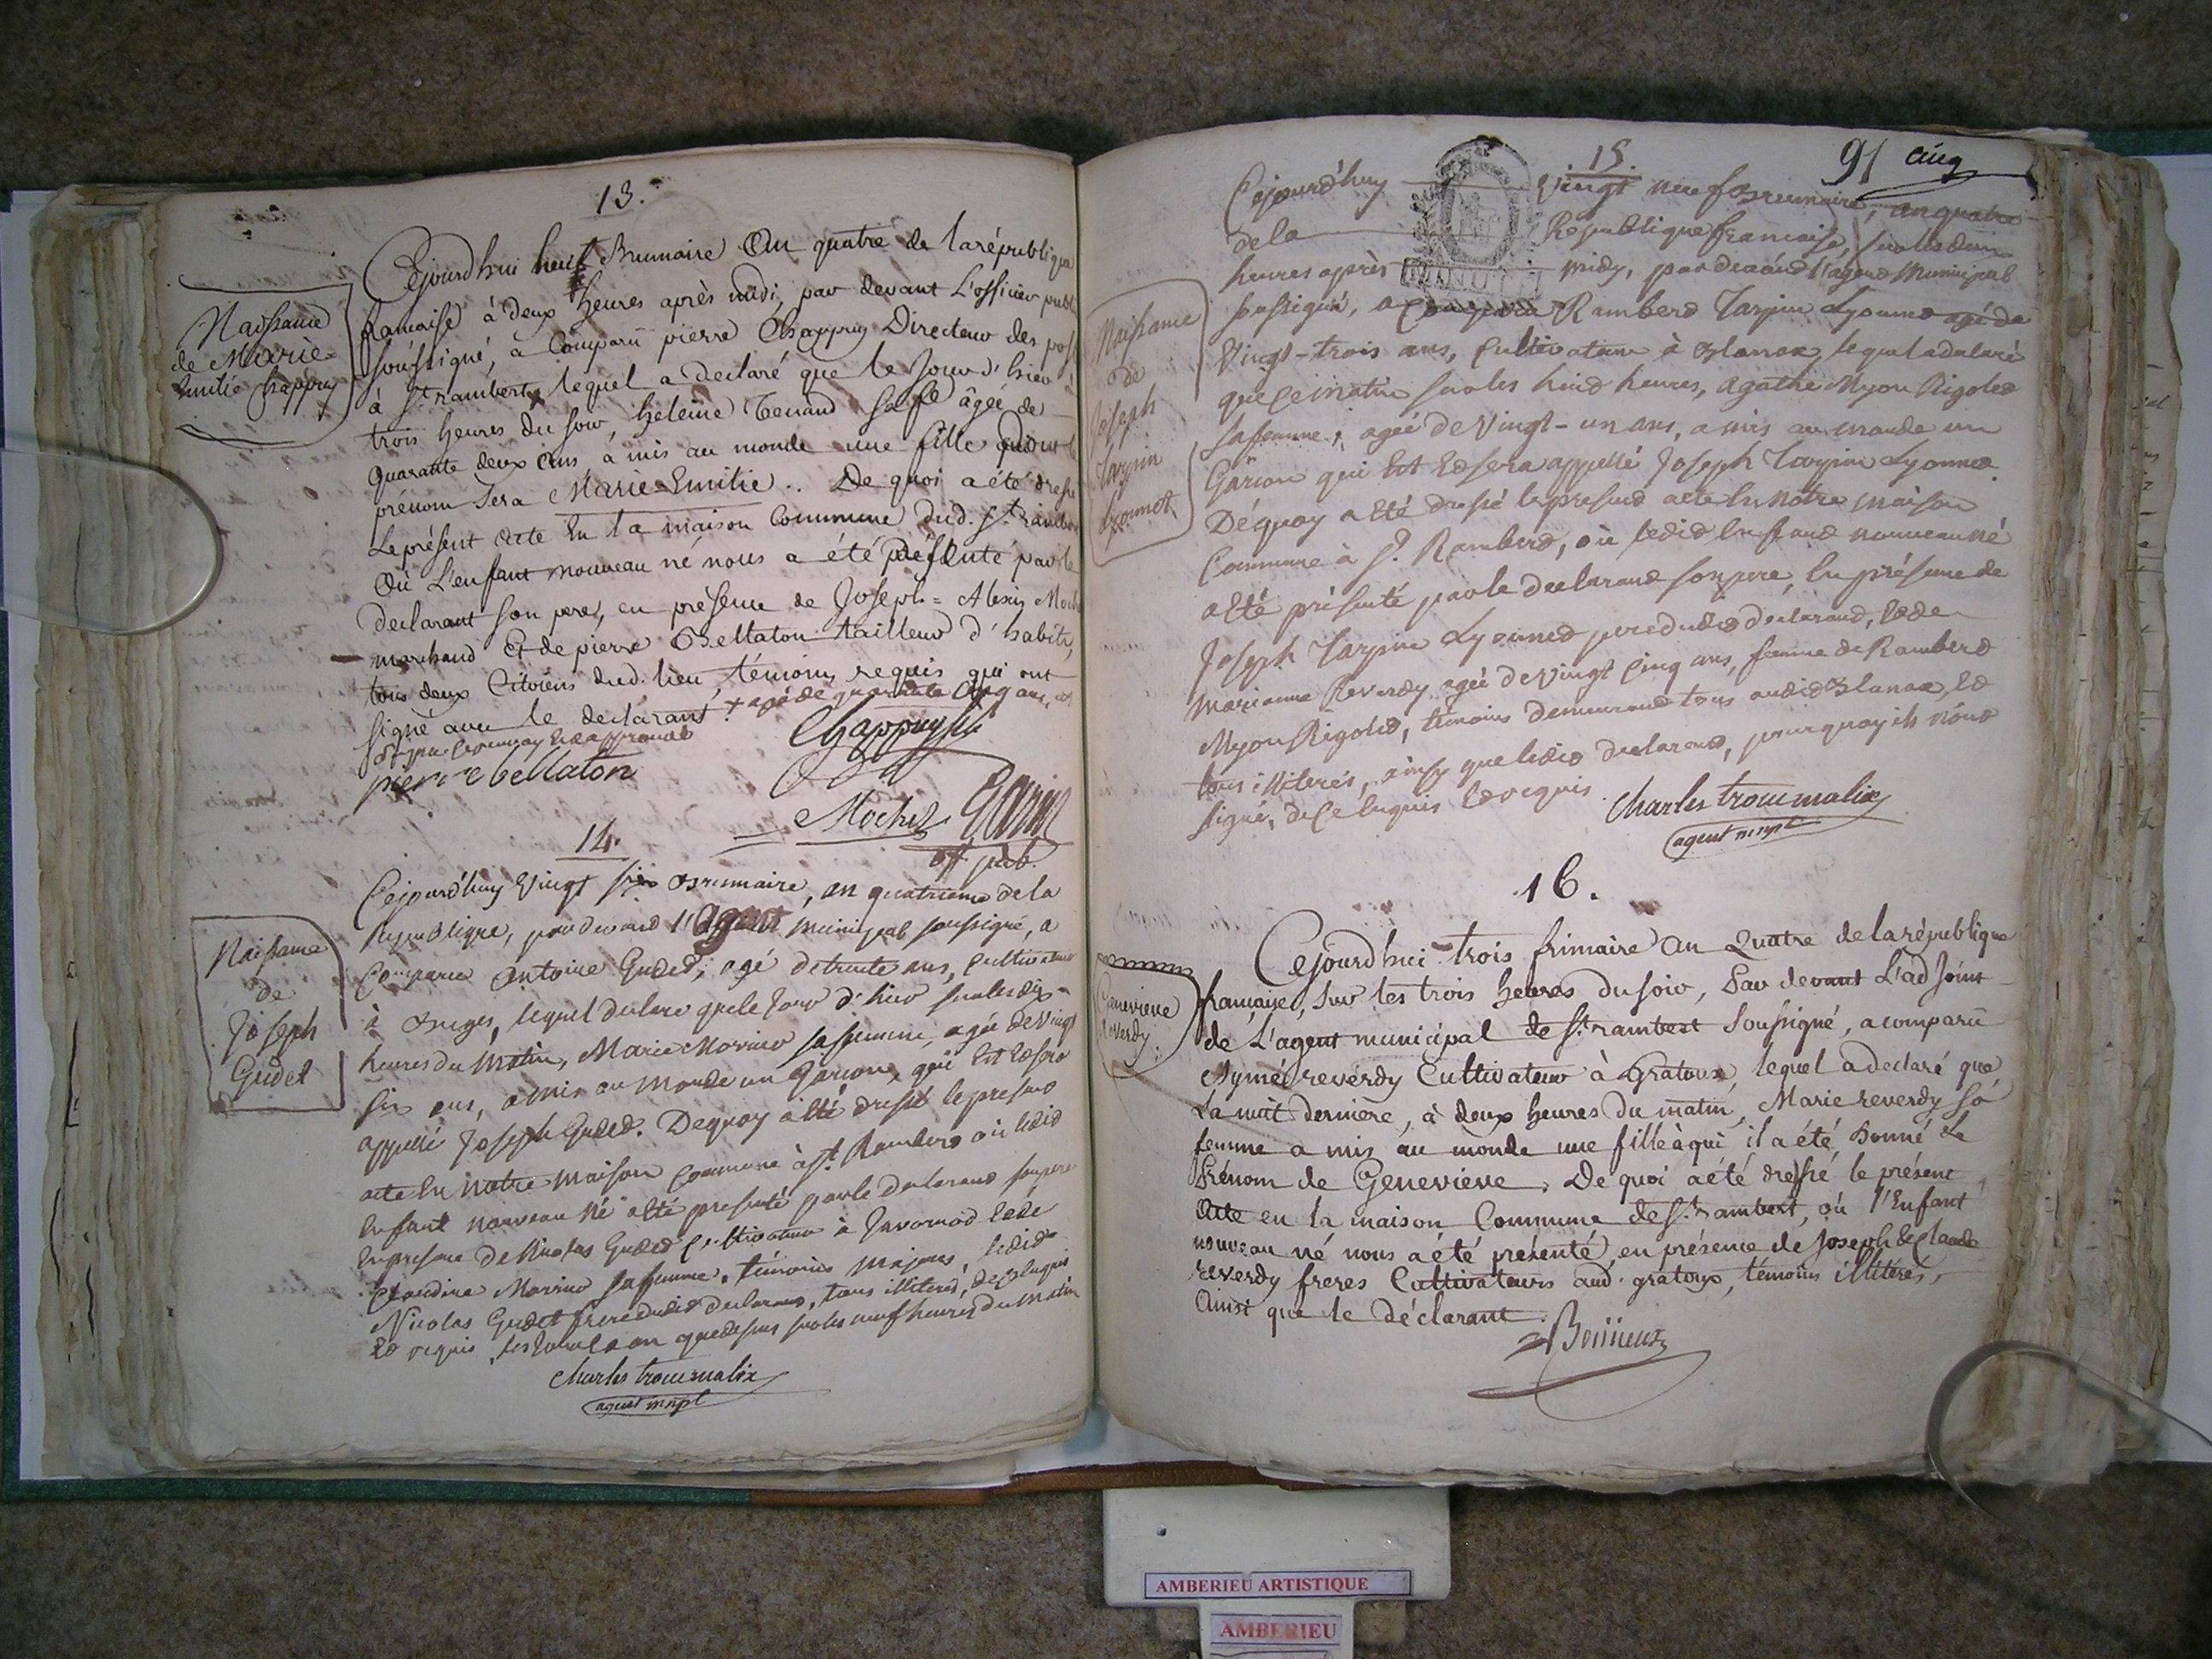 13.
Naissance
de Marie=
Emilie Chappuy
Cejourd'hui neuf Brumaire An quatre de la république
francaise à deux heures après midi, par devant L'officier publ
soussigné, a Comparu pierre Chappuy Directeur des post
à St rambert, lequel a declaré que le Jour d'hier à
trois heures du soir, heleine Tenand sa fe âgée de
quarante deux ans a mis au monde une fille dont le
prénom sera Marie-Emilie .. De quoi a été dressé
Le présent acte En la maison Commune dud. St rambert
Où L'enfant nouveau né nous a été présenté par le
declarant son pere, en présence de Joseph = Alexis Moch
marchand Et de pierre Bellaton tailleur d'habits,
tous deux Citoiens dud. lieu, témoins requis qui ont
signé avec le declarant. + agé de quarante cinq ans,
pierre bellaton
Chappuy
Mochez
off. pub.
14.
Naissance
de
Joseph
Gudet
Cejourd'huy Vingt six Brumaire, an quatrieme de la
Republique, pardevant l'agent municipal soussigné, a
Comparu Antoine Gudet, agé de trente ans, Cultivateur
à Bruges, lequel declare que le Jour d'hier sur les dix
heures du matin, Marie Morino sa femme, agée de Vingt
six ans, a mis au monde un Garcon, qui Est Et sera
appellé Joseph Gudet. Dequoy a Eté dressé le present
acte En notre maison Commune à St Rambert où ledit
Enfant nouveau né a Eté presenté par le declarant son pere
En presence de Nicolas Gudet Cultivateur à Javornod Et de
Claudine Morino sa femme, témoins majeurs, ledit
Nicolas Gudet frere dudit declarant, tous illiterés, de ce Enquis
Et requis, les Jour Et an que dessus sur les neuf heures du matin
Charles trocu malix
agent mnpl
15.
91 cinq
Naissance
de
Joseph
Tarpin
Lyonnet
Cejourd'huy Vingt neuf Brumaire, an quatre
de la Republique francaise, sur les deux
heures après midy, par devant l'agent Municipal
MINUTE
soussigné, a Comparu Rambert Tarpin Lyonnet agé de
Vingt-trois ans, Cultivateur à Blanaz, lequel a declaré
que ce matin sur les huit heures, Agathe Myon Rigolet
sa femme, agée de Vingt-un ans, a mis au monde un
Garcon qui Est Et sera appellé Joseph Tarpin Lyonnet
Déquoy a Eté dressé le present acte En notre maison
Commune à St. Rambert, où ledit Enfant nouveau né
a Eté présenté par le declarant son pere, En présence de
Joseph Tarpin Lyonnet pere dudit declarant, Et de
Marianne Reverdy agée de Vingt Cinq ans, femme de Rambert
Myon Rigolet, témoins demeurant tous audit Blanaz, Et
tous illiterés, ainsy que ledit declarant, pourquoy ils n'ont
signé, de ce Enquis Et requis.
Charles trocu malix
agent mnpl
16.
Genevieve
Reverdy.
Cejourd'hui trois frimaire an Quatre de la république
française, sur les trois heures du soir, Par devant L'adjoint
de L'agent municipal de St. rambert soussigné, a comparu
Aymé reverdy Cultivateur à Gratoux, lequel a declaré que
La nuit dernière, à deux heures du matin, Marie reverdy sa
femme a mis au monde une fille à qui il a été donné Le
Prénom de Genevieve. De quoi a été dressé le présent
Acte en la maison Commune de St. rambert, où l'Enfant
nouveau né nous a été présenté, en présence de Joseph & Claude
reverdy freres Cultivateurs aud. gratoux, témoins illitérés,
Ainsi que le déclarant.
AMBERIEU ARTISTIQUE
AMBERIEU